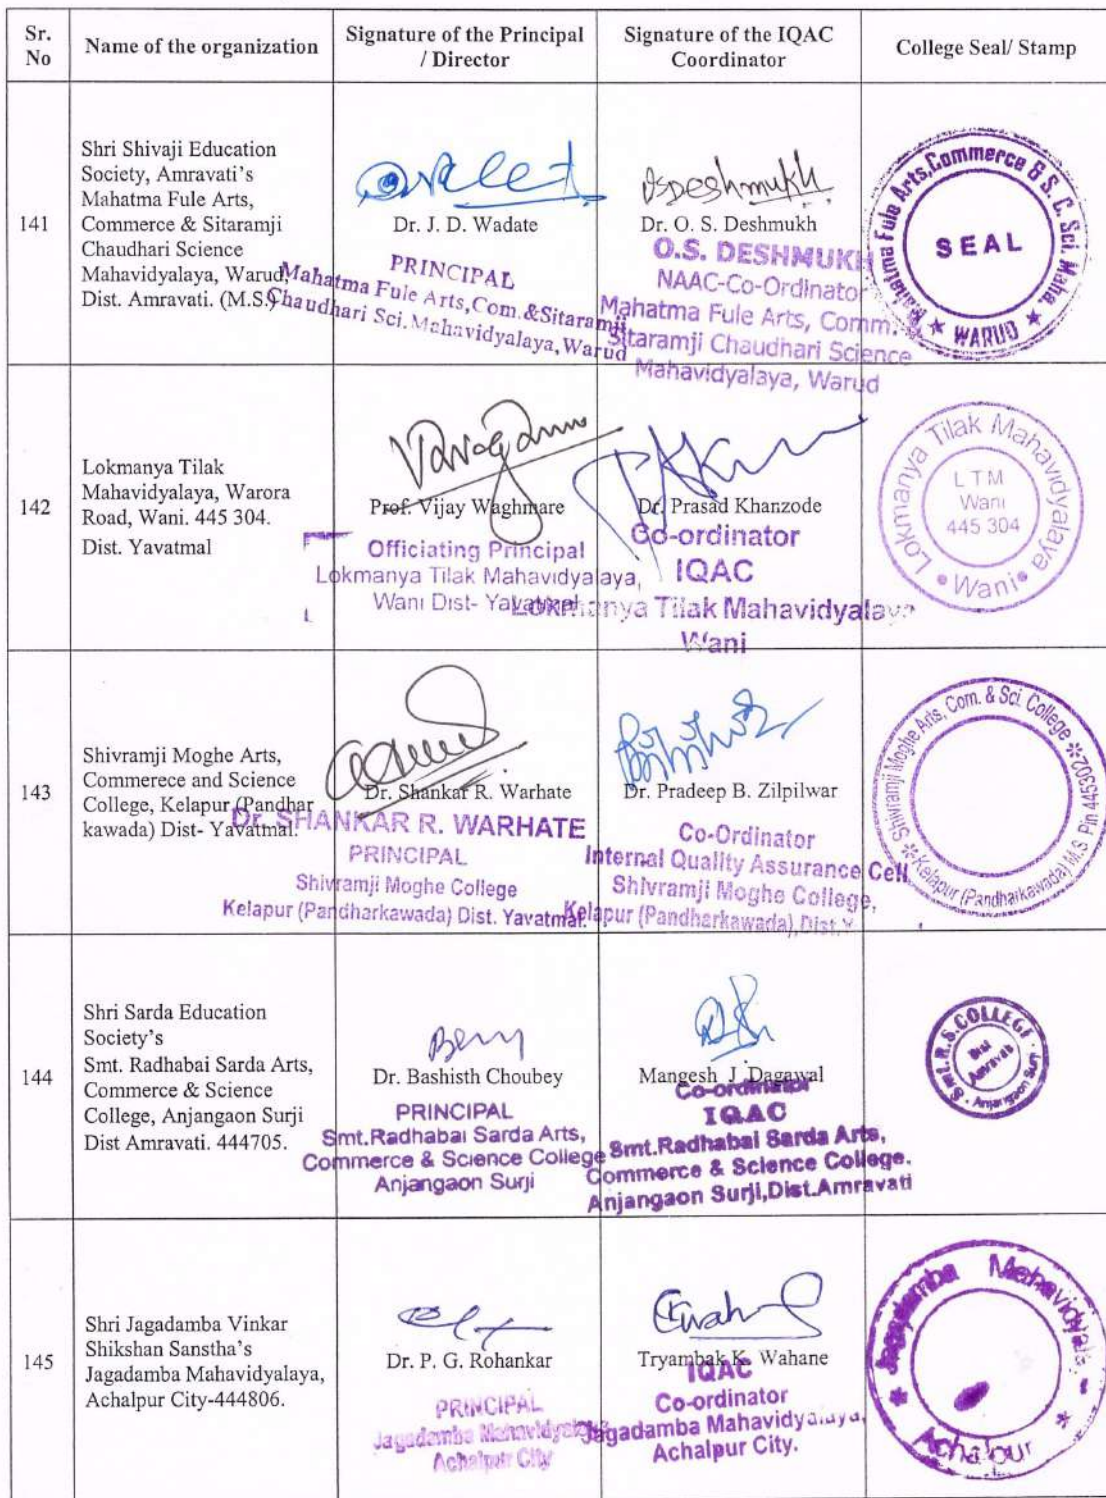 Sr. No
Name of the organization
Signature of the Principal / Director
Signature of the IQAC Coordinator
College Seal/ Stamp
141
Shri Shivaji Education
Society, Amravati's
Mahatma Fule Arts,
Commerce & Sitaramji
Chaudhari Science
Mahavidyalaya, Warud,
Dist. Amravati. (M.S.)
Dr. J. D. Wadate
PRINCIPAL
Mahatma Fule Arts,Com.&Sitaramji
Chaudhari Sci.Mahavidyalaya,Warud
DSDeshmukh
Dr. O. S. Deshmukh
O.S. DESHMUKH
NAAC-Co-Ordinator
Mahatma Fule Arts, Comm.
Sitaramji Chaudhari Science
Mahavidyalaya, Warud
Mahatma Fule Arts,Commerce & S. C. Sci. Maha.
SEAL
★ WARUD ★
142
Lokmanya Tilak
Mahavidyalaya, Warora
Road, Wani. 445 304.
Dist. Yavatmal
Prof. Vijay Waghmare
Officiating Principal
Lokmanya Tilak Mahavidyalaya,
Wani Dist- Yavatmal
Dr. Prasad Khanzode
Co-ordinator
IQAC
Lokmanya Tilak Mahavidyalaya
Wani
Lokmanya Tilak Mahavidyalaya
LTM
Wani
445 304
• Wani •
143
Shivramji Moghe Arts,
Commerece and Science
College, Kelapur (Pandhar
kawada) Dist- Yavatmal.
Dr. Shankar R. Warhate
Dr. SHANKAR R. WARHATE
PRINCIPAL
Shivramji Moghe College
Kelapur (Pandharkawada) Dist. Yavatmal.
Dr. Pradeep B. Zilpilwar
Co-Ordinator
Internal Quality Assurance Cell
Shivramji Moghe College,
Kelapur (Pandharkawada),Dist.Y
Shivramji Moghe Arts, Com. & Sci. College
Kelapur (Pandharkawada) M.S. Pin 445302
144
Shri Sarda Education
Society's
Smt. Radhabai Sarda Arts,
Commerce & Science
College, Anjangaon Surji
Dist Amravati. 444705.
Dr. Bashisth Choubey
PRINCIPAL
Smt.Radhabai Sarda Arts,
Commerce & Science College
Anjangaon Surji
Mangesh J Dagawal
Co-ordinator
IQAC
Smt.Radhabai Sarda Arts,
Commerce & Science College.
Anjangaon Surji,Dist.Amravati
Smt.R.S.COLLEGE
Dist
Amravati
Anjangaon Surji
145
Shri Jagadamba Vinkar
Shikshan Sanstha's
Jagadamba Mahavidyalaya,
Achalpur City-444806.
Dr. P. G. Rohankar
PRINCIPAL
Jagadamba Mahavidyalaya
Achalpur City
Tryambak K. Wahane
IQAC
Co-ordinator
Jagadamba Mahavidyalaya,
Achalpur City.
Jagadamba Mahavidyala
Achalpur